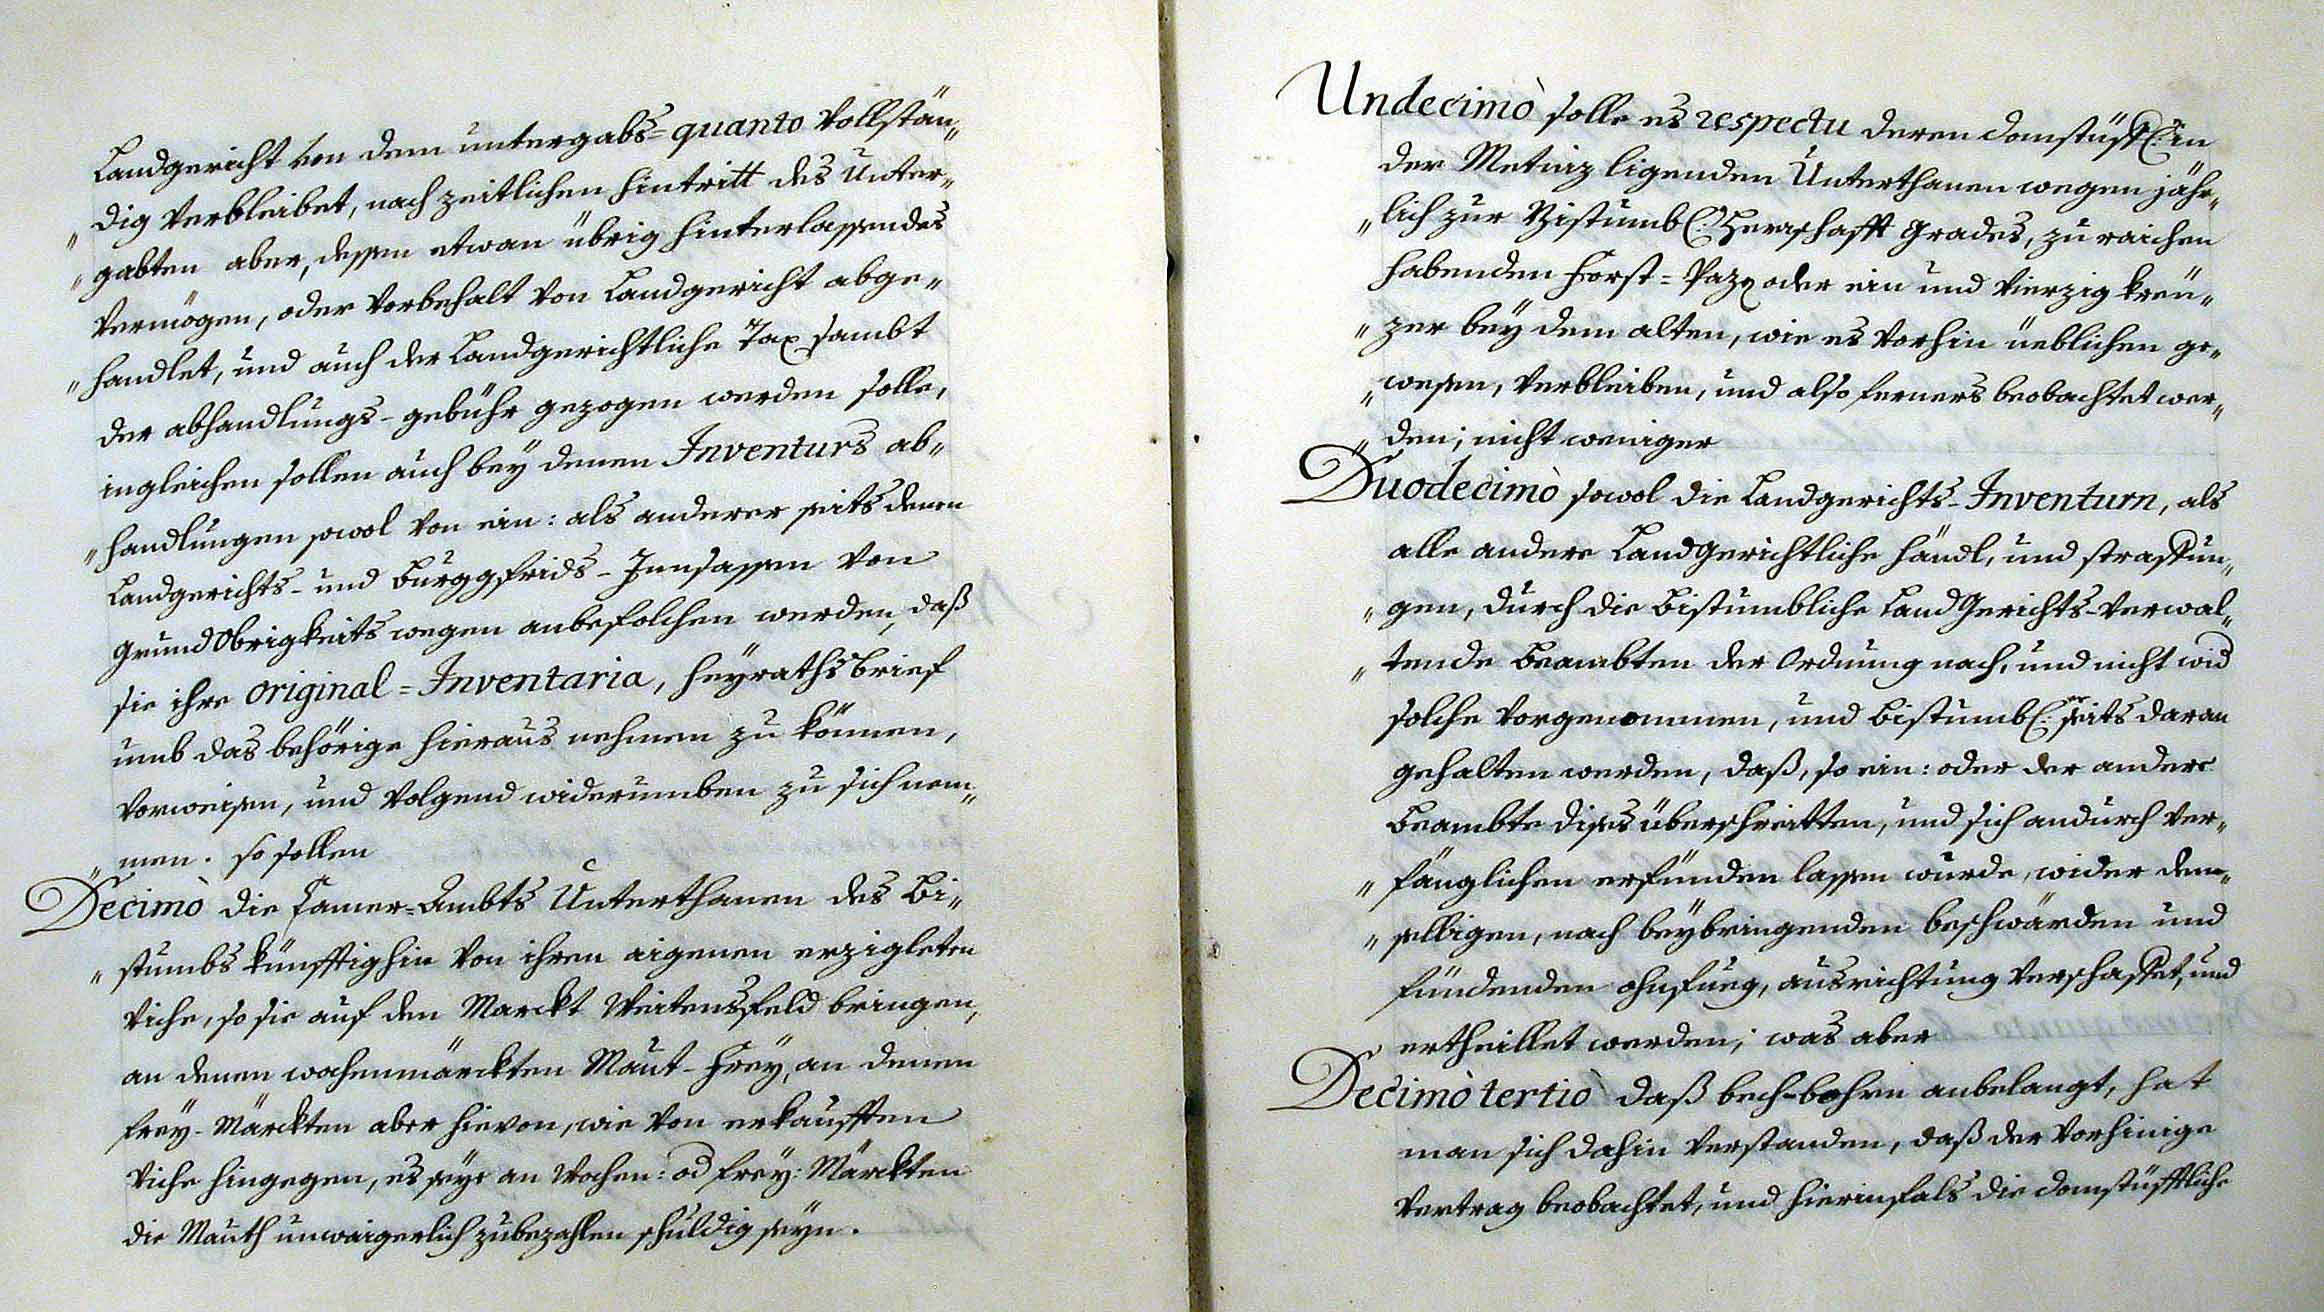 Landgericht von dem untergabs=quanto vollstän„
„dig verbleibet, nach zeitlichen hintritt des Unter„
„gabten aber, dessen etwan übrig hinterlassendes
Vermögen, oder Vorbehalt von Landgericht abge„
„handlet, und auch der Landgerichtliche Tax sambt
der abhandlungs-gebühr gezogen werden solle,
ingleichen sollen auch bey denen Inventurs ab„
„handlungen sowol von ein: als anderer seits denen
Landgerichts- und Burggfrids-Innsassen von
grund Obrigkeits wegen anbefolchen werden, daß
sie ihre original=Inventaria, heyraths brief
umb das behörige hieraus nehmen zu können,
vorweisen, und volgend widerumben zu sich nem„
„men. so sollen
Decimò die Camer=Ambts Unterthanen des Bi„
„stumbs künfftighin von ihren aigenen erzigleten
Viche, so sie auf den Marckt Weitensfeld bringen,
an denen wochenmärckten Maut-frey, an denen
frey-Märckten aber hievon, wie von erkaufften
Viche hingegen, es seye an Wochen: od frey: Märckten
die Mauth unwaigerlich zubezahlen schuldig seyn.
Undecimò solle es respectu deren domstüfftl: in
der Metniz ligenden Unterthanen wegen jähr„
„lich zur Bistumbl: Herrschafft Grades, zu raichen
habenden Forst= oder ein und vierzig kreü„
„zer bey dem alten, wie es vorhin üeblichen ge„
„wesen, verbleiben, und also ferners beobachtet wer„
„den; nicht weniger
Duodecimò sowol die Landgerichts-Inventurn, als
alle andere Landgerichtliche händl, und straffun„
„gen, durch die Bistumbliche Land Gerichts-Verwal„
„tende Beambten der Ordnung nach, und nicht wid
solche vorgenommen, und Bistumbl: seits daran
gehalten werden, daß, so ein: oder der andere
Beambte dises überschreitten, und sich andurch ver„
„fänglichen erfünden lassen wurde, wider den„
„selbigen, nach beybringenden beschwärden und
fündenden ohnfueg, ausrichtung verschaffet, und
ertheillet werden; was aber
Decimò tertiò daß bech-bohrn anbelangt, hat
man sich dahin verstanden, daß der vorhinige
Vertrag beobachtet, und hierinfals die domstüfftliche